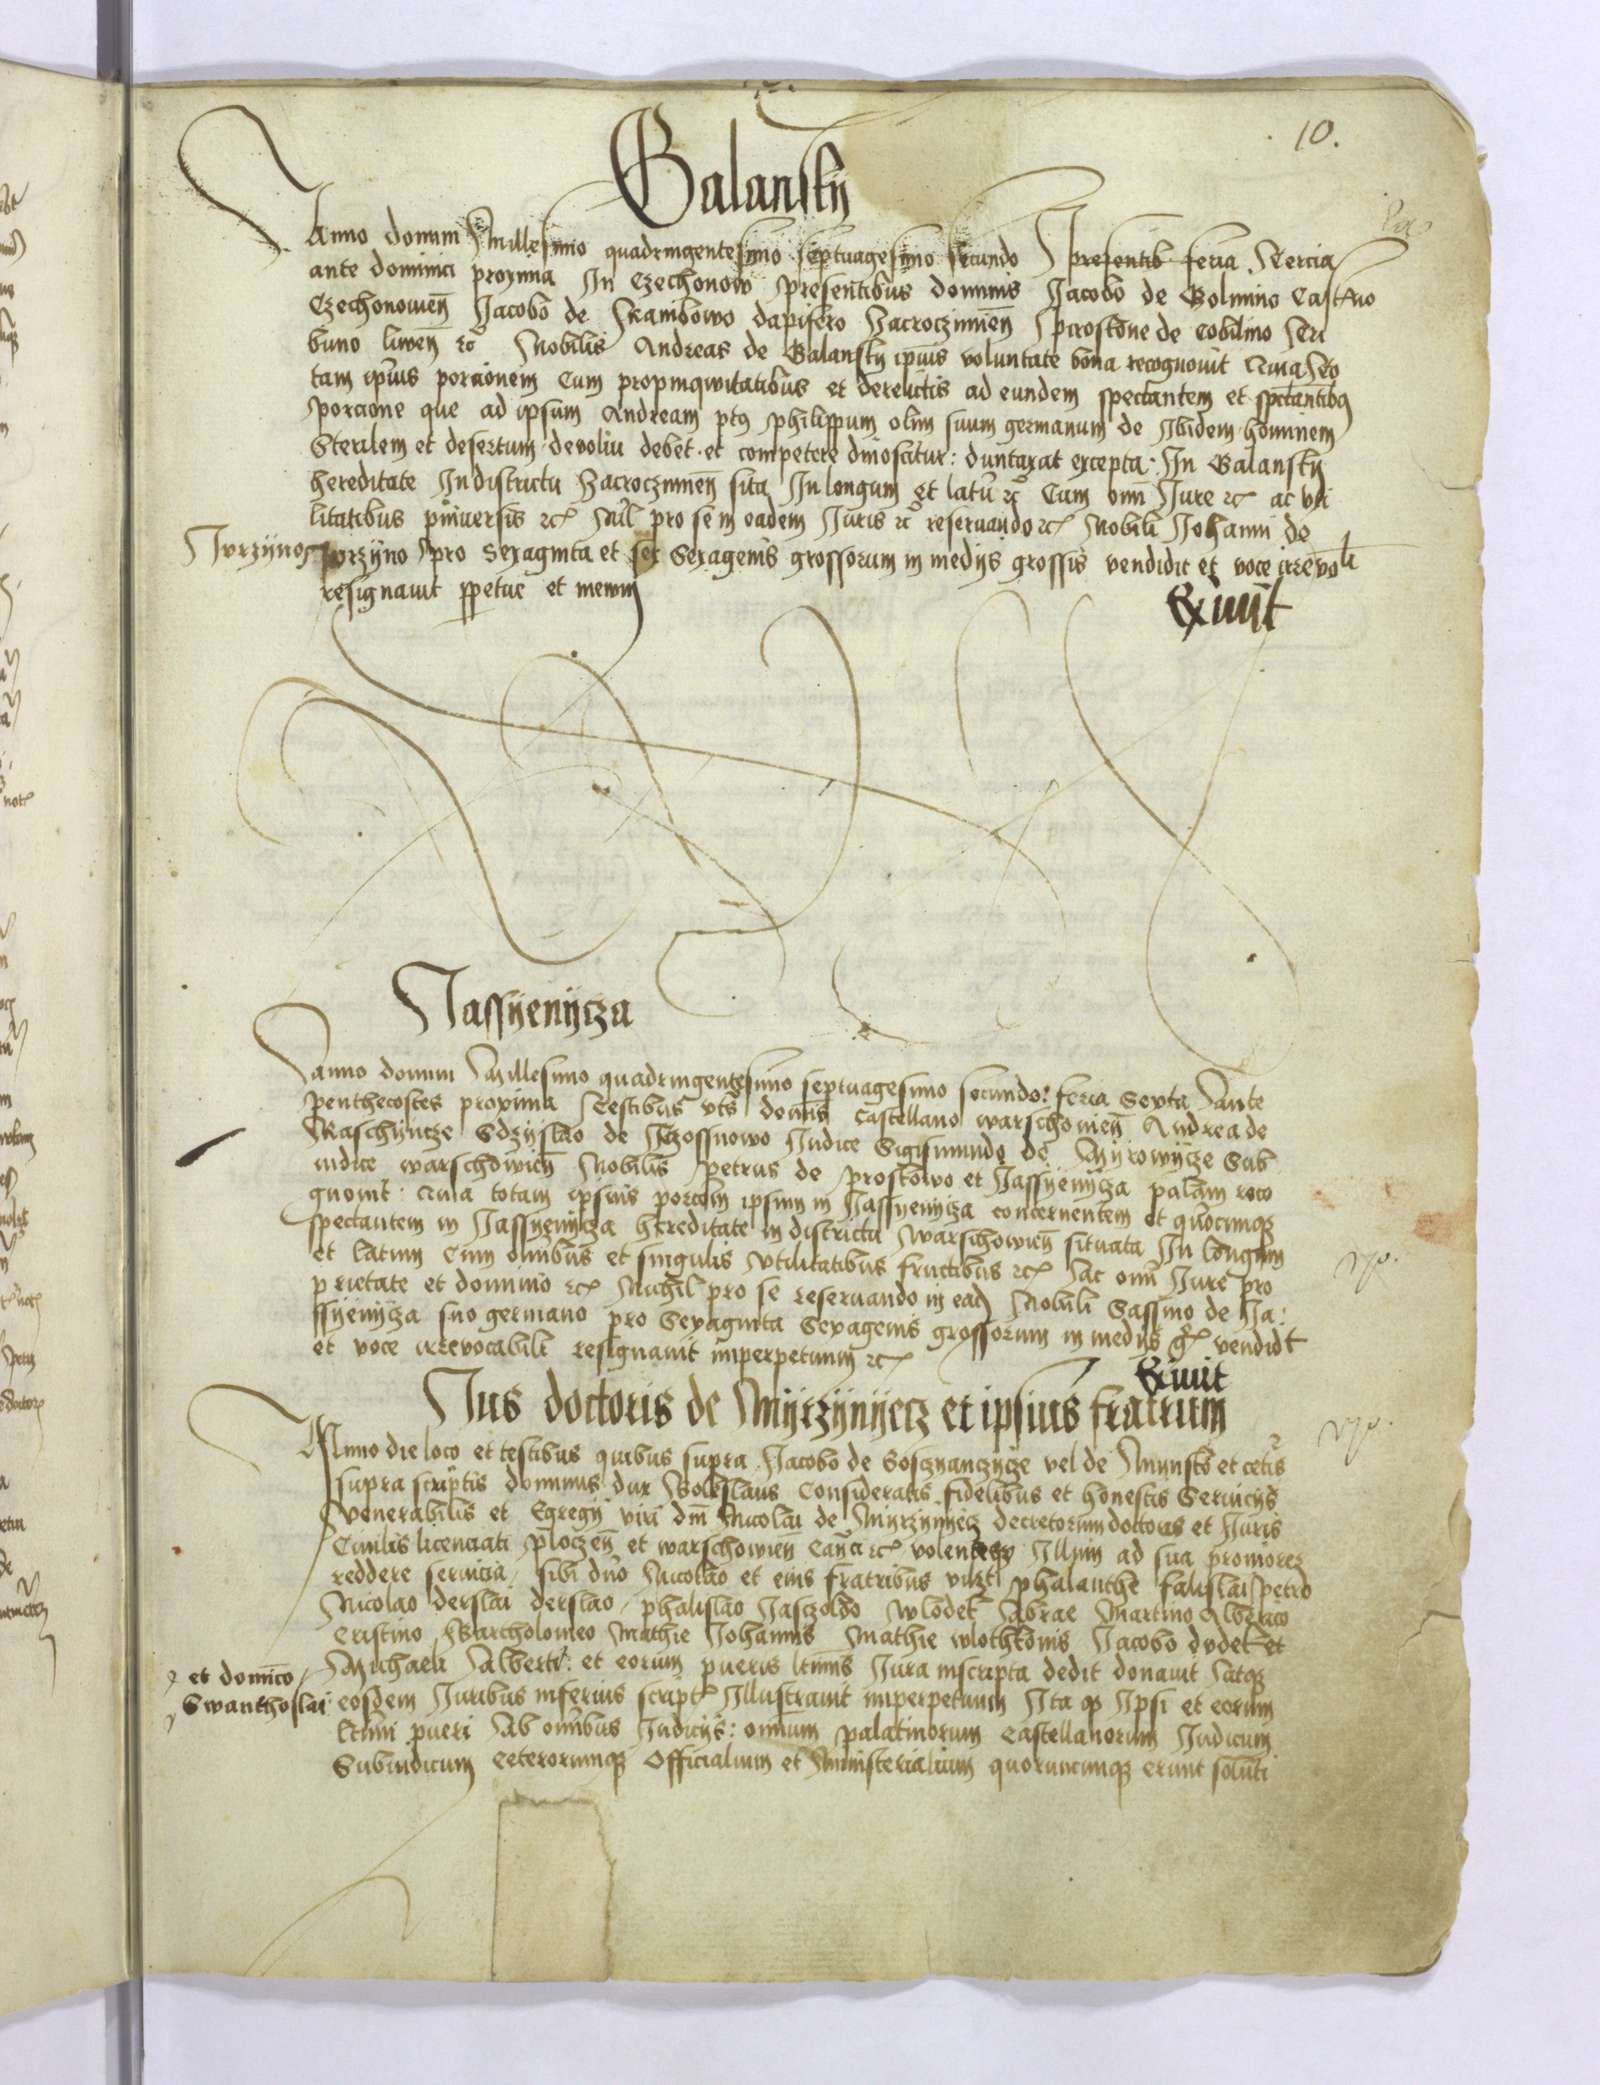 10.
Galansky
Anno domini Millesimo quadringentesimo septuagesimo secundo presentib feria Tercia
ante dominici proxima In Czechonow presentibus dominis Jacobo de Golmino Cast
Czechonowien Jacobo de dapifero Zacroczimien de Cobilino Tri
buno liwen etc Nobilis Andreas de Galansky ipius voluntate bona recognovit Quia
tam ipius porcionem Cum propinqwitatibus et derelictis ad eundem spectantem et spectantibus
porcione que ad ipsum Andream philippum olim suum germanum de Ibidem hominem
Sterilem et desertum devolui debet et competere dinoscitur: duntaxat excepta In Galansky
hereditate In districtu Zacroczimien sita In longum et latu etc Cum omi Jure etc ac uti
litatibus universis etc Nil pro se in eadem Juris etc reservando etc Nobili Johanni de
Jvrzyno pro Sexaginta et sex Sexagenis grossorum in medys grossis vendidit et voce irrevoli
resignavit ppetue et mewm
Exivit
Jassyenycza
Anno domini Millesimo quadringentesimo septuagesimo secundo: feria Sexta Ante
penthecostes proxima Testibus dominis Castellano warschowien Andrea de
Raschyncze de Judice Sigismundo de Myrowycze Sub
iudice warschowien Nobilis petrus de prostkowo et Jassyenycza palam reco
gnovit: Quia totam ipsius ipsum in Jassyenycza concernentem et quocumqz
spectantem in Jassyenycza hereditate in districtu warschowien situata In longum
et latum Cum omibus et singulis Utilitatibus fructibus etc Ac omi Jure pro
prietate et dominio etc Nichil pro se reservando in ead Nobili Sassino de Ja:
ssyenycza suo germano pro Sexaginta Sexagenis grossorum in medys gr vendidt
et voce irrevocabili resignavit imperpetuum etc
Exivit
Jus doctoris de Myrzynyecz et ipsius fratrum
Anno die loco et testibus quibus supra Jacobo de vel de et
supra scriptis dominus dux Boleslaus Consideratis fidelibus et honestis Serviciys
Venerabilis et Egregy viri dni Nicolai de Myrzynyecz decretorum doctoris et Juris
Civilis licenciati plocen et warschowien etc volentesqz Illum ad sua
reddere servicia sibi dno Nicolao et eius fratribus phalanthe falislai petro
Nicolao derslai derslao phalislao wlodek Martino Alberto
Cristino Bartholomeo Mathie Johannis Mathie Jacobo et
Michaeli Alberti: et eorum pueris Jura inscripta dedit donavit Atqz
et domico
Swanthoslai
eosdem Juribus inferius script Illustravit imperpetuum Ita qz Ipsi et eorum
pueri Ab omibus Judicys: omium palatinorum Castellanorum Judicum
Subiudicum Ceterorumqz Officialium et Ministerialium quorumcumqz erunt soluti